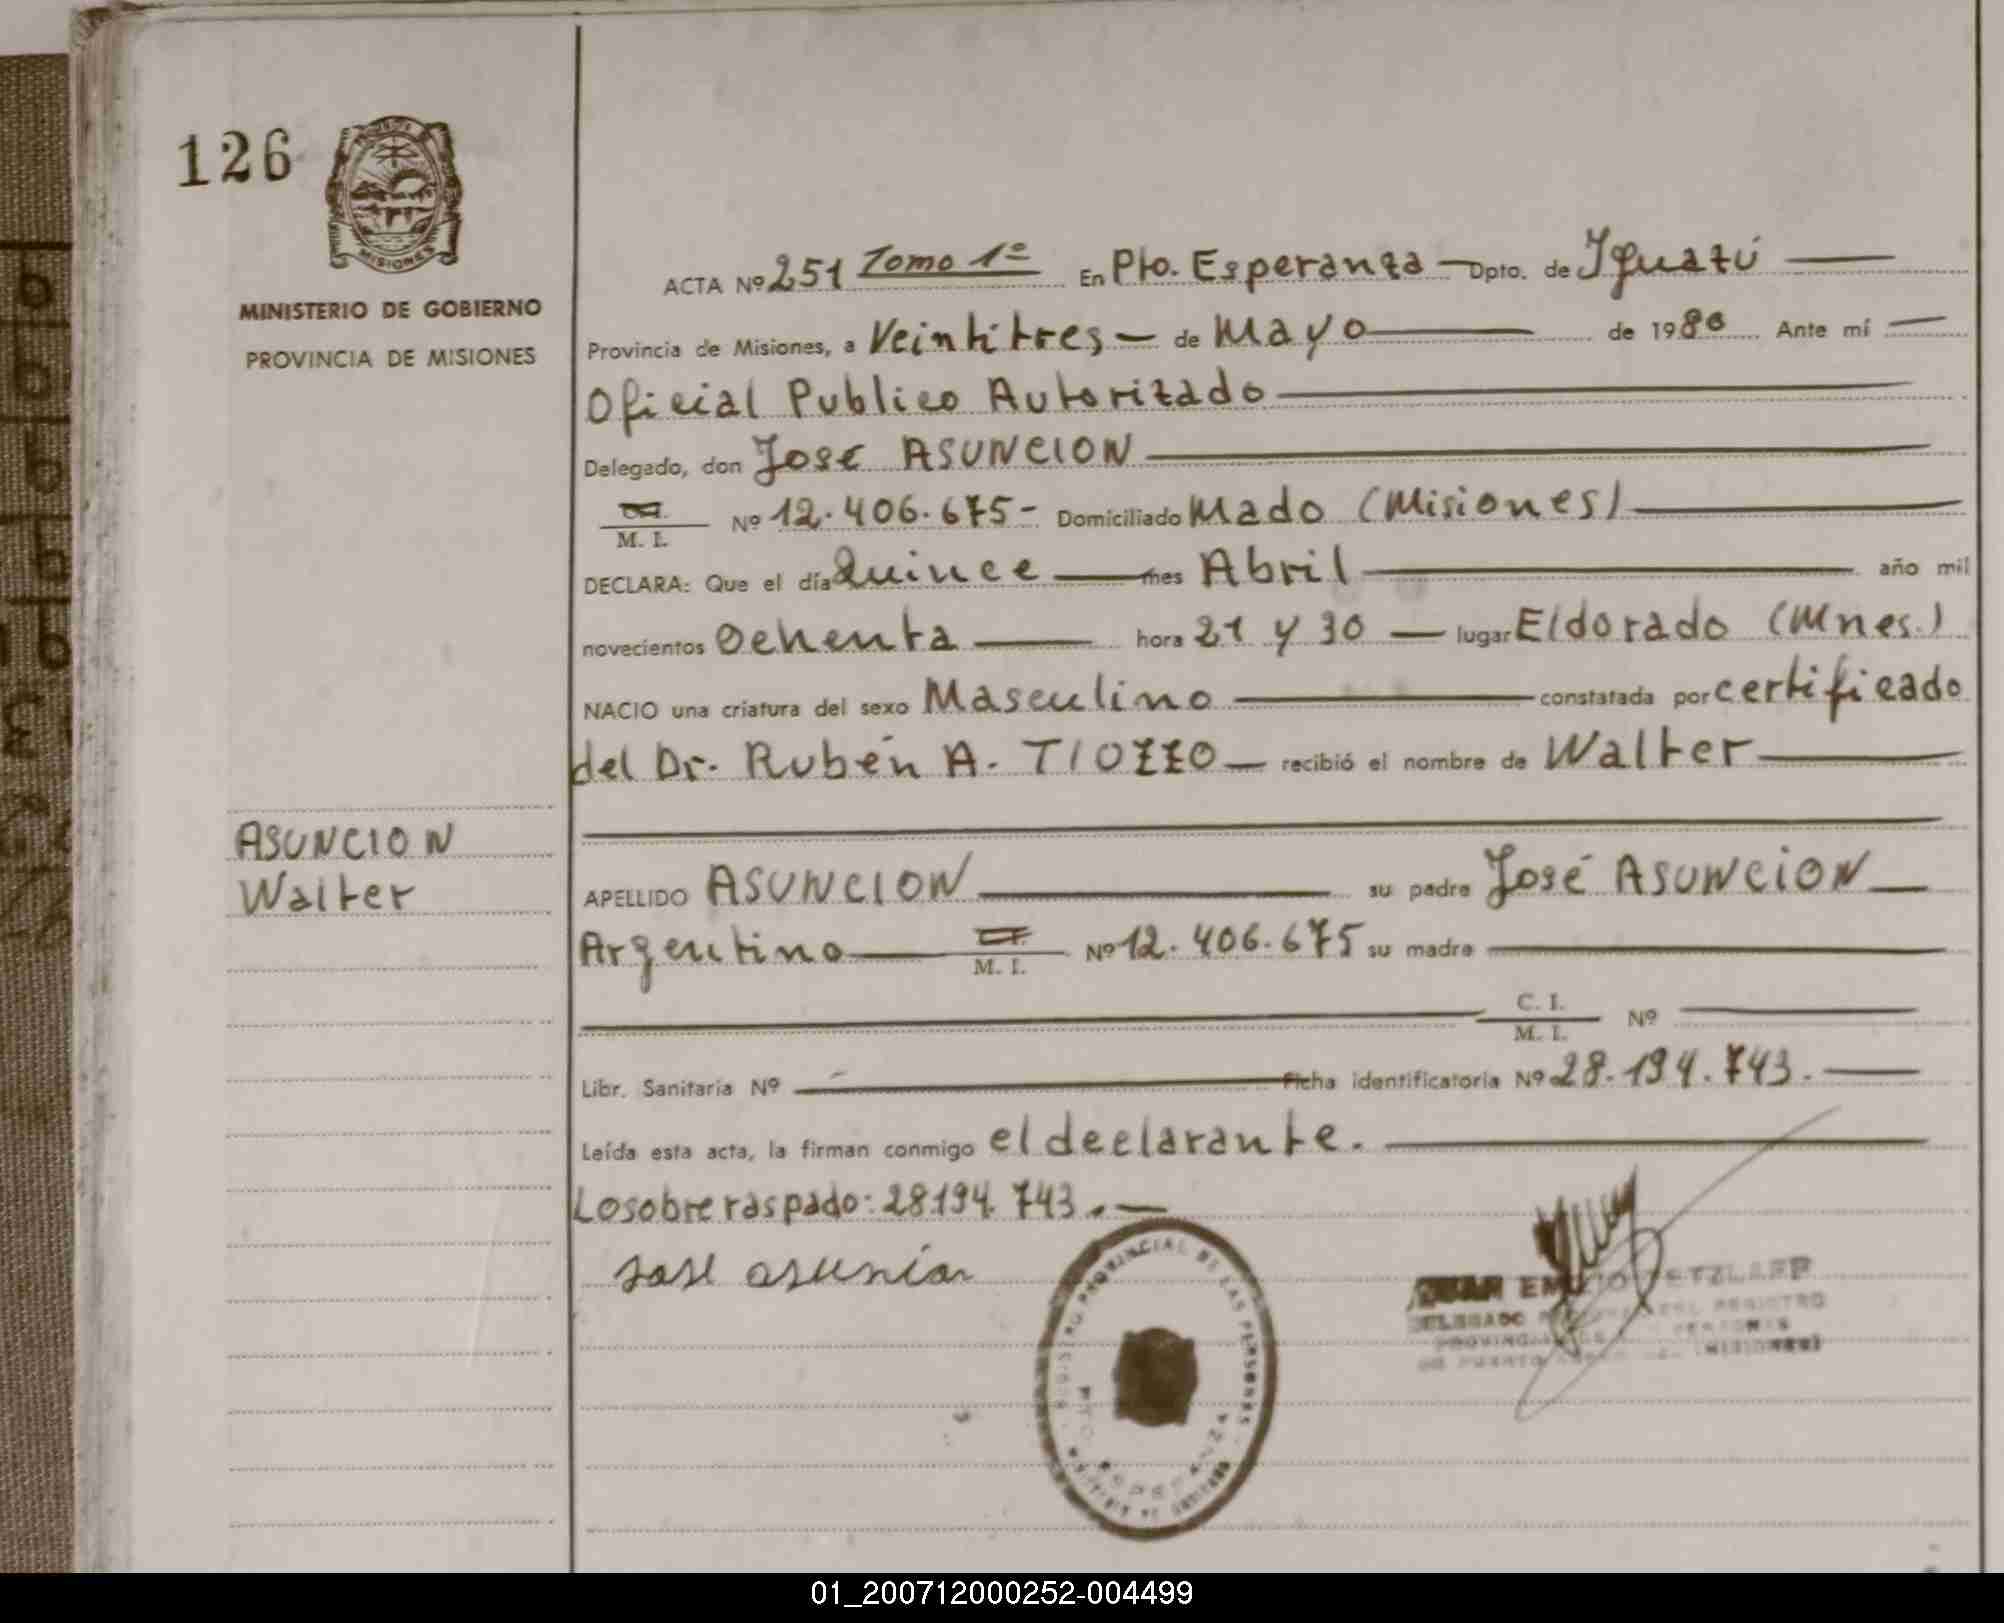 126
MISIONES
MINISTERIO DE GOBIERNO
PROVINCIA DE MISIONES
ASUNCION
Walter
ACTA Nº 251 Tomo 1º En Pto. Esperanza Dpto. de Iguazú
Provincia de Misiones, a Veintitres de Mayo de 1980 Ante mí
Oficial Publico Autorizado
Delegado, don José ASUNCION
M. I. Nº 12.406.675- Domiciliado Mado (Misiones)
DECLARA: Que el día Quince mes Abril año mil
novecientos Ochenta hora 21 y 30 lugar Eldorado (Mnes.)
NACIO una criatura del sexo Masculino constatada por certificado
del Dr. Rubén A. TIOZZO recibió el nombre de Walter
APELLIDO ASUNCION su padre José ASUNCION
Argentino M. I. Nº 12.406.675 su madre
C. I.
M. I. Nº
Libr. Sanitaria Nº Ficha identificatoria Nº 28.194.743.
Leída esta acta, la firman conmigo el declarante.
Lo sobre raspado: 28194.743.
REGISTRO PROVINCIAL DE LAS PERSONAS
PTO ESPERANZA
MINISTERIO DE GOBIERNO
DELEGADO REGISTRO
(MISIONES)
01_200712000252-004499